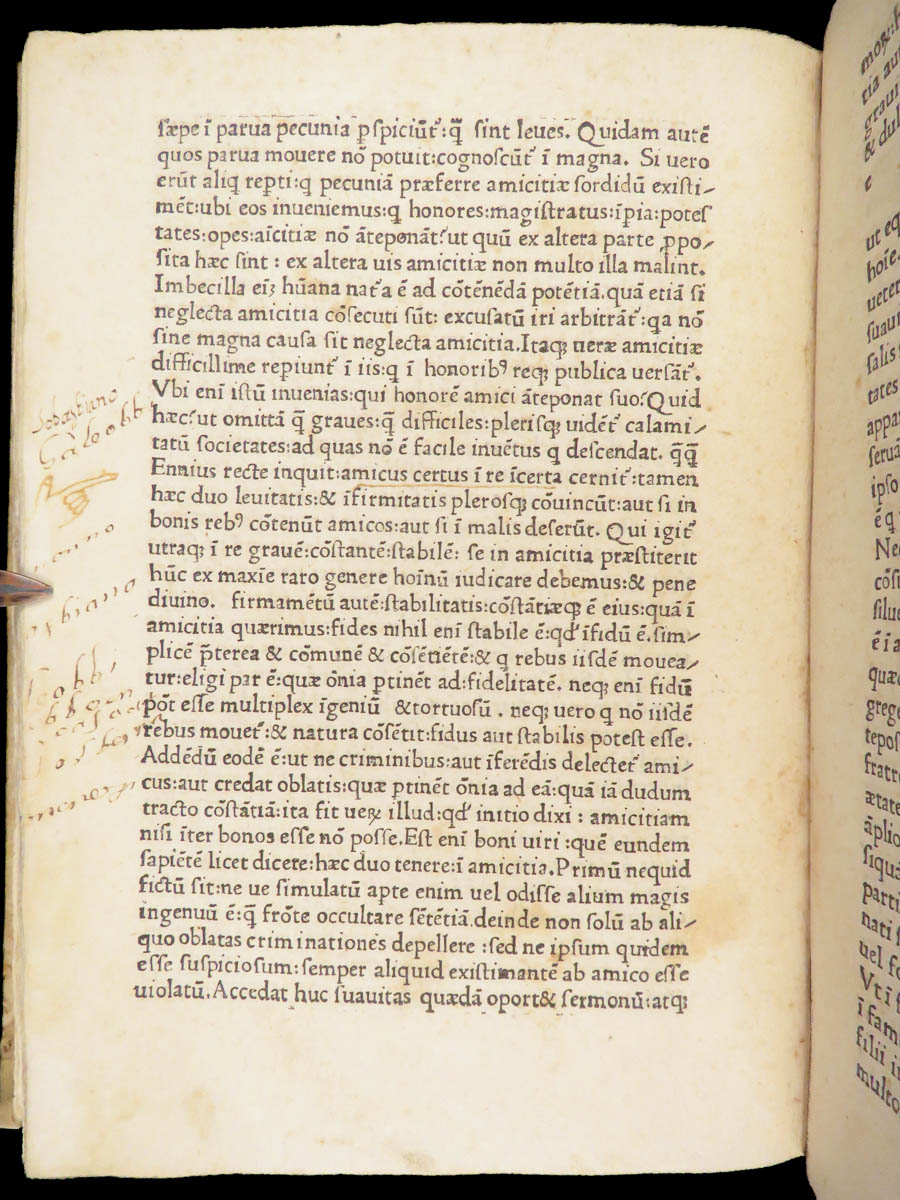 sæpe ī parua pecunia ꝑspiciūt᷑:q̄ sint leues. Quidam autē
quos parua mouere nō potuit:cognoscūt᷑ ī magna. Si uero
erūt aliq reꝑti:q pecuniā præferre amicitiæ sordidū existi-
mēt:ubi eos inueniemus:q honores:magistratus:īpia:potes
tates:opes:aīcitiæ nō āteponāt?ut quū ex altera parte ꝓpo-
sita hæc sint : ex altera uis amicitiæ non multo illa malint.
Imbecilla eīꝫ hūana nat᷑a ē ad cōtēnēdā potētiā.quā etiā si
neglecta amicitia cōsecuti sūt: excusatū iri arbitrāt᷑:qa nō
sine magna causa sit neglecta amicitia.Itaqꝫ ueræ amicitiæ
difficillime reꝑiunt᷑ ī iis:q ī honoribꝰ reqꝫ publica uersāt᷑.
Vbi enī istū inuenias:qui honorē amici āteponat suo?Quid
hæc?ut omittā q̄ graues:q̄ difficiles:plerisqꝫ uidēt᷑ calami-
tatū societates:ad quas nō ē facile inuētus q descendat. q̄q̄
Ennius recte inquit:amicus certus ī re īcerta cernit᷑:tamen
hæc duo leuitatis:& īfirmitatis plerosqꝫ cōuincūt:aut si in
bonis rebꝰ cōtēnūt amicos:aut si ī malis deserūt. Qui igit᷑
utraqꝫ ī re grauē:cōstantē:stabilē: se in amicitia præstiterit
hūc ex maxīe raro genere hoīnū iudicare debemus:& pene
diuino. firmamētū autē:stabilitatis:cōstātiæqꝫ ē eius:quā ī
amicitia quærimus:fides nihil enī stabile ē:qđ īfidū ē.sim-
plicē p̄terea & cōmunē & cōsētiētē:& q rebus iisdē mouea-
tur:eligi par ē:quæ ōnia ꝑtinēt ad:fidelitatē. neqꝫ enī fidū
pōt esse multiplex īgeniū &tortuosū . neqꝫ uero q nō iisdē
rebus mouet᷑:& natura cōsētit:fidus aut stabilis potest esse.
Addēdū eodē ē:ut ne criminibus:aut īferēdis delectet᷑ ami-
cus:aut credat oblatis:quæ ꝑtinēt ōnia ad eā:quā iā dudum
tracto cōstātiā:ita fit ueꝝ illud:qđ initio dixi : amicitiam
nisi īter bonos esse nō posse.Est enī boni uiri :quē eundem
sapiētē licet dicere:hæc duo tenere:ī amicitia.Primū nequid
fictū sit:ne ue simulatū apte enim uel odisse alium magis
ingenuū ē:q̄ frōte occultare sētētiā.deinde non solū ab ali-
quo oblatas criminationes depellere :sed ne ipsum quidem
esse suspiciosum:semper aliquid existimantē ab amico esse
uiolatū.Accedat huc suauitas quædā oport& sermonū:atqꝫ
Sobastiano